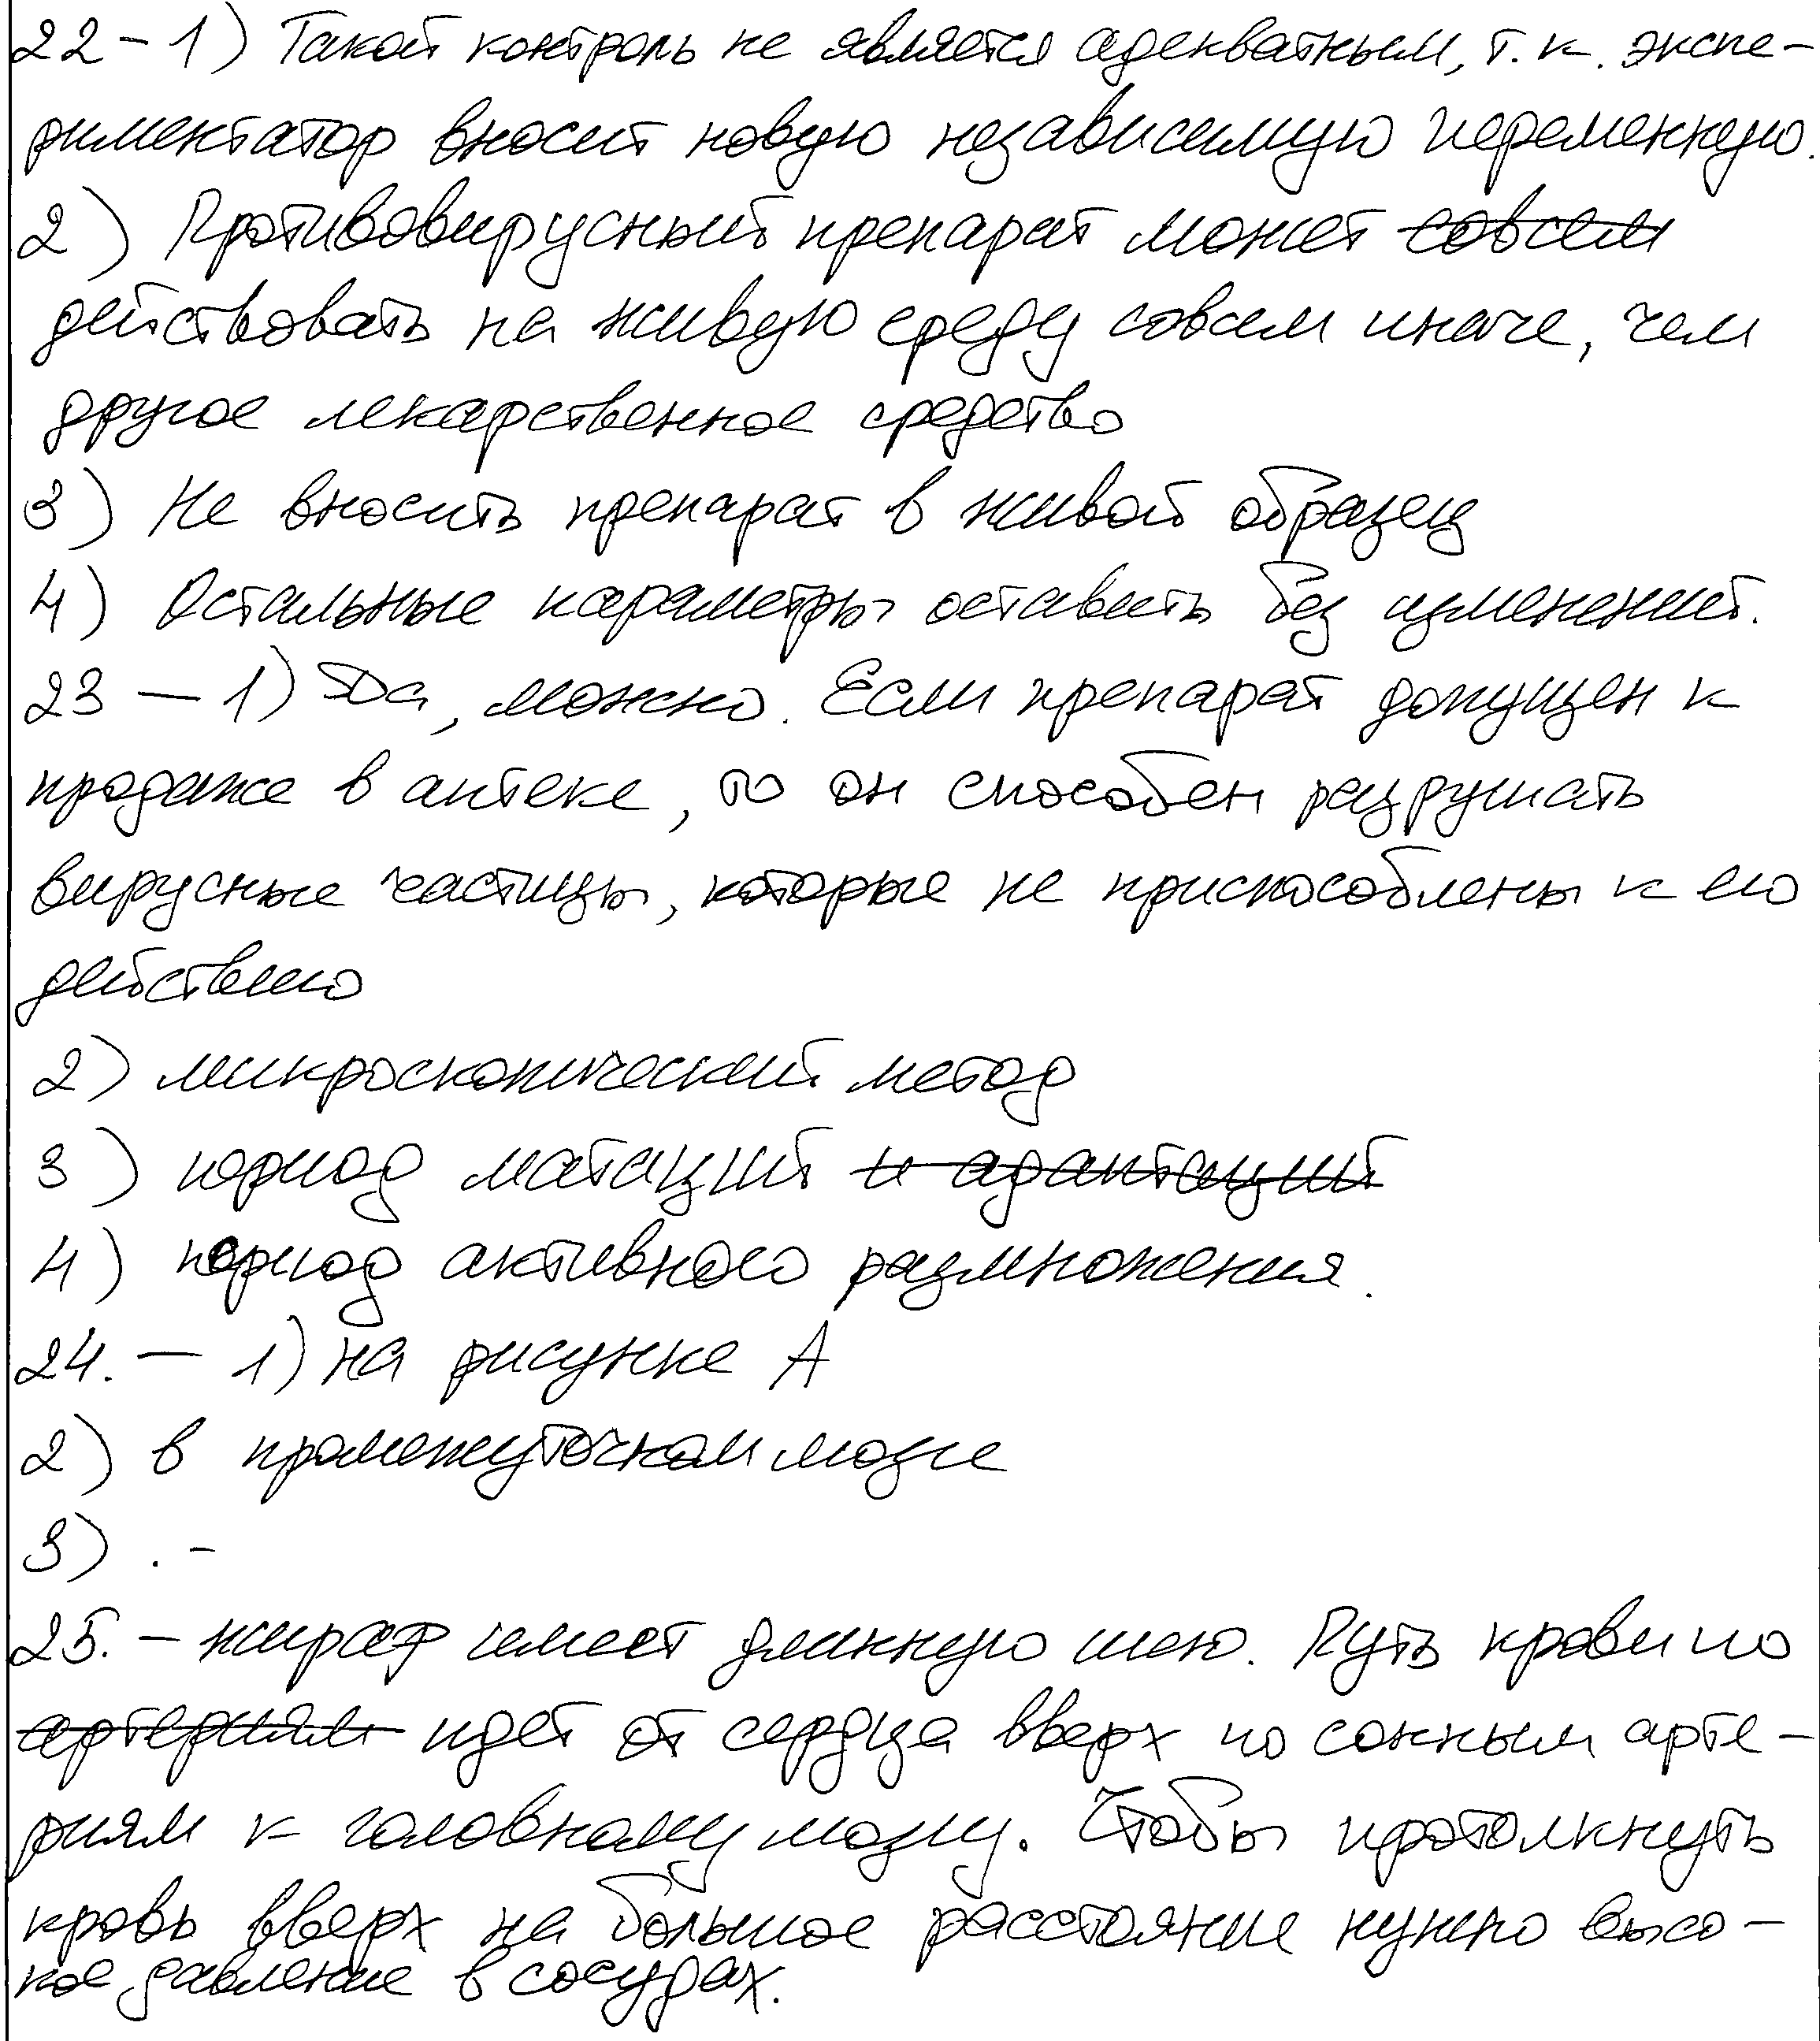 22 - 1) Такой контроль не является адекватным, т.к. экспе-
риментатор вносит новую независимую переменную.
2) Противовирусный препарат может совсем
действовать на живую среду совсем иначе, чем
другое лекарственное средство
3) Не вносить препарат в живой образец
4) Остальные параметры оставить без изменений.
23 — 1) Да, можно. Если препарат допущен к
продаже в аптеке, то он способен разрушать
вирусные частицы, которые не приспособлены к его
действию
2) микроскопический метод
3) период матаций и адаптаций
4) период активного размножения.
24. — 1) на рисунке А
2) в промежуточном мозге
3) . -
25. - жираф имеет длинную шею. Путь крови по
артериям идет от сердца вверх по сонным арте-
риям к головному мозгу. Чтобы протолкнуть
кровь вверх на большое расстояние нужно высо-
кое давление в сосудах.